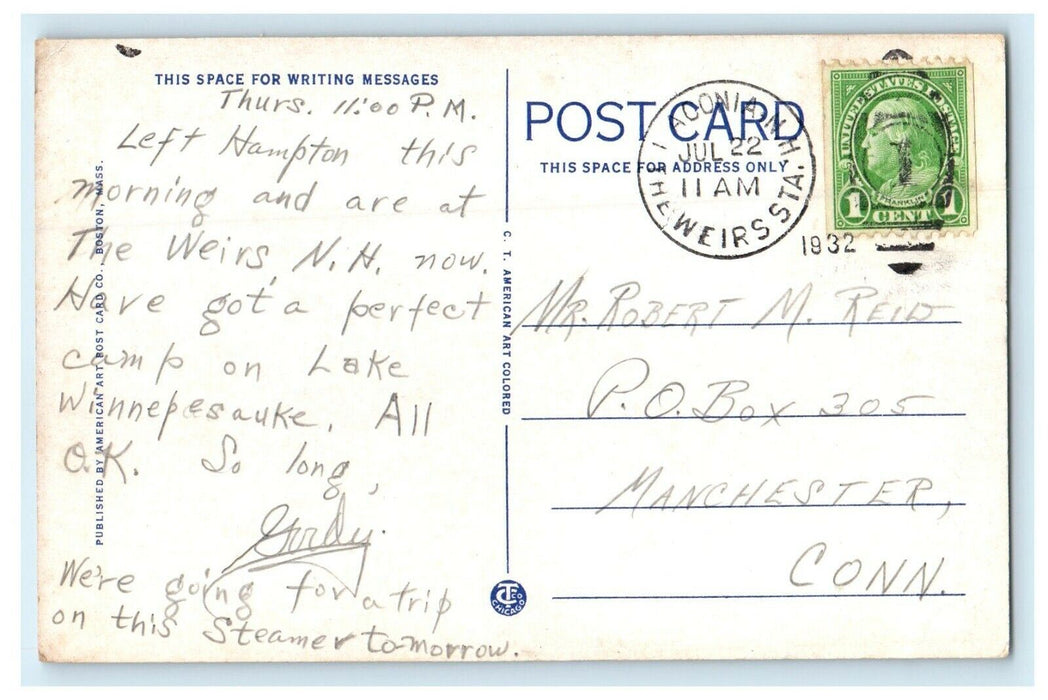 THIS SPACE FOR WRITING MESSAGES
Thurs. 11:00 P.M.
Left Hampton this
morning and are at
The Weirs, N.H. now.
Have got a perfect
camp on Lake
Winnepesauke. All
O.K. So long,
Gordy.
We're going for a trip
on this Steamer to-morrow.
PUBLISHED BY AMERICAN ART POST CARD CO., BOSTON, MASS.
C. T. AMERICAN ART COLORED
CTCO
CHICAGO
POST CARD
THIS SPACE FOR ADDRESS ONLY
LACONIA N.H.
JUL 22
11 AM
THE WEIRS STA.
1932
UNITED STATES POSTAGE
FRANKLIN
1 CENT 1
MR. ROBERT M. REID
P.O. BOX 305
MANCHESTER,
CONN.